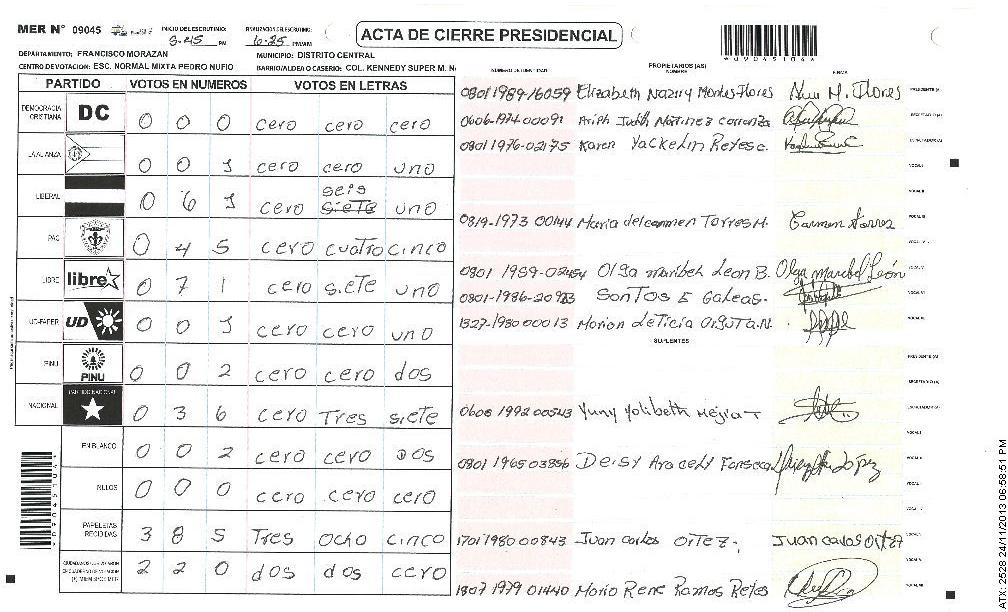 MER Nº 09045
INICIO DEL ESCRUTINIO:
FINALIZACION DEL ESCRUTINIO:
PM
PM/AM
ACTA DE CIERRE PRESIDENCIAL
*09045106*
DEPARTAMENTO: FRANCISCO MORAZAN
MUNICIPIO: DISTRITO CENTRAL
CENTRO DE VOTACION: ESC. NORMAL MIXTA PEDRO NUFIO
BARRIO/ALDEA O CASERIO: COL. KENNEDY SUPER M.
PARTIDO VOTOS EN NUMEROS VOTOS EN LETRAS
DEMOCRACIA CRISTIANA DC 0 0 0 cero cero cero
LA ALIANZA 0 0 1 cero cero uno
LIBERAL 0 6 1 cero seis siete uno
PAC 0 4 5 cero cuatro cinco
LIBRE libre 0 7 1 cero siete uno
UD-FAPER UD 0 0 1 cero cero uno
PINU PINU 0 0 2 cero cero dos
NACIONAL PARTIDO NACIONAL 0 3 6 cero Tres siete
EN BLANCO 0 0 2 cero cero dos
NULOS 0 0 0 cero cero cero
PAPELETAS RECIBIDAS 3 8 5 Tres ocho cinco
2 2 0 dos dos cero
NUMERO DE IDENTIDAD
PROPIETARIOS (AS)
NOMBRE
FIRMA
0801-1989-16059 Elizabeth Montes Flores
PRESIDENTE (A)
0606-1974-00091 Judith Martinez
SECRETARIO (A)
0801 1976-02175 Karen Yackelin Reyes c.
ESCRUTADOR (A)
0819-1973 00144 Maria del carmen Torres M. Carmen Torres
0801 1959-02454 Olga Maribel Leon B. Olga Maribel León
0801-1986- Santos E Galeas.
1327-1980 00013 Marion Leticia
SUPLENTES
PRESIDENTE (A)
SECRETARIO (A)
0608 1992 00543 Yuny Yolibeth Mejia T
ESCRUTADOR (A)
0801 1965 03856 Deisy Aracely Fonseca López
1701 1980 00843 Juan carlos Ortez. Juan carlos Ortez
1807 1979 01440 Mario Rene Ramos Reyes
2528 24/11/2013 06:58:51 PM